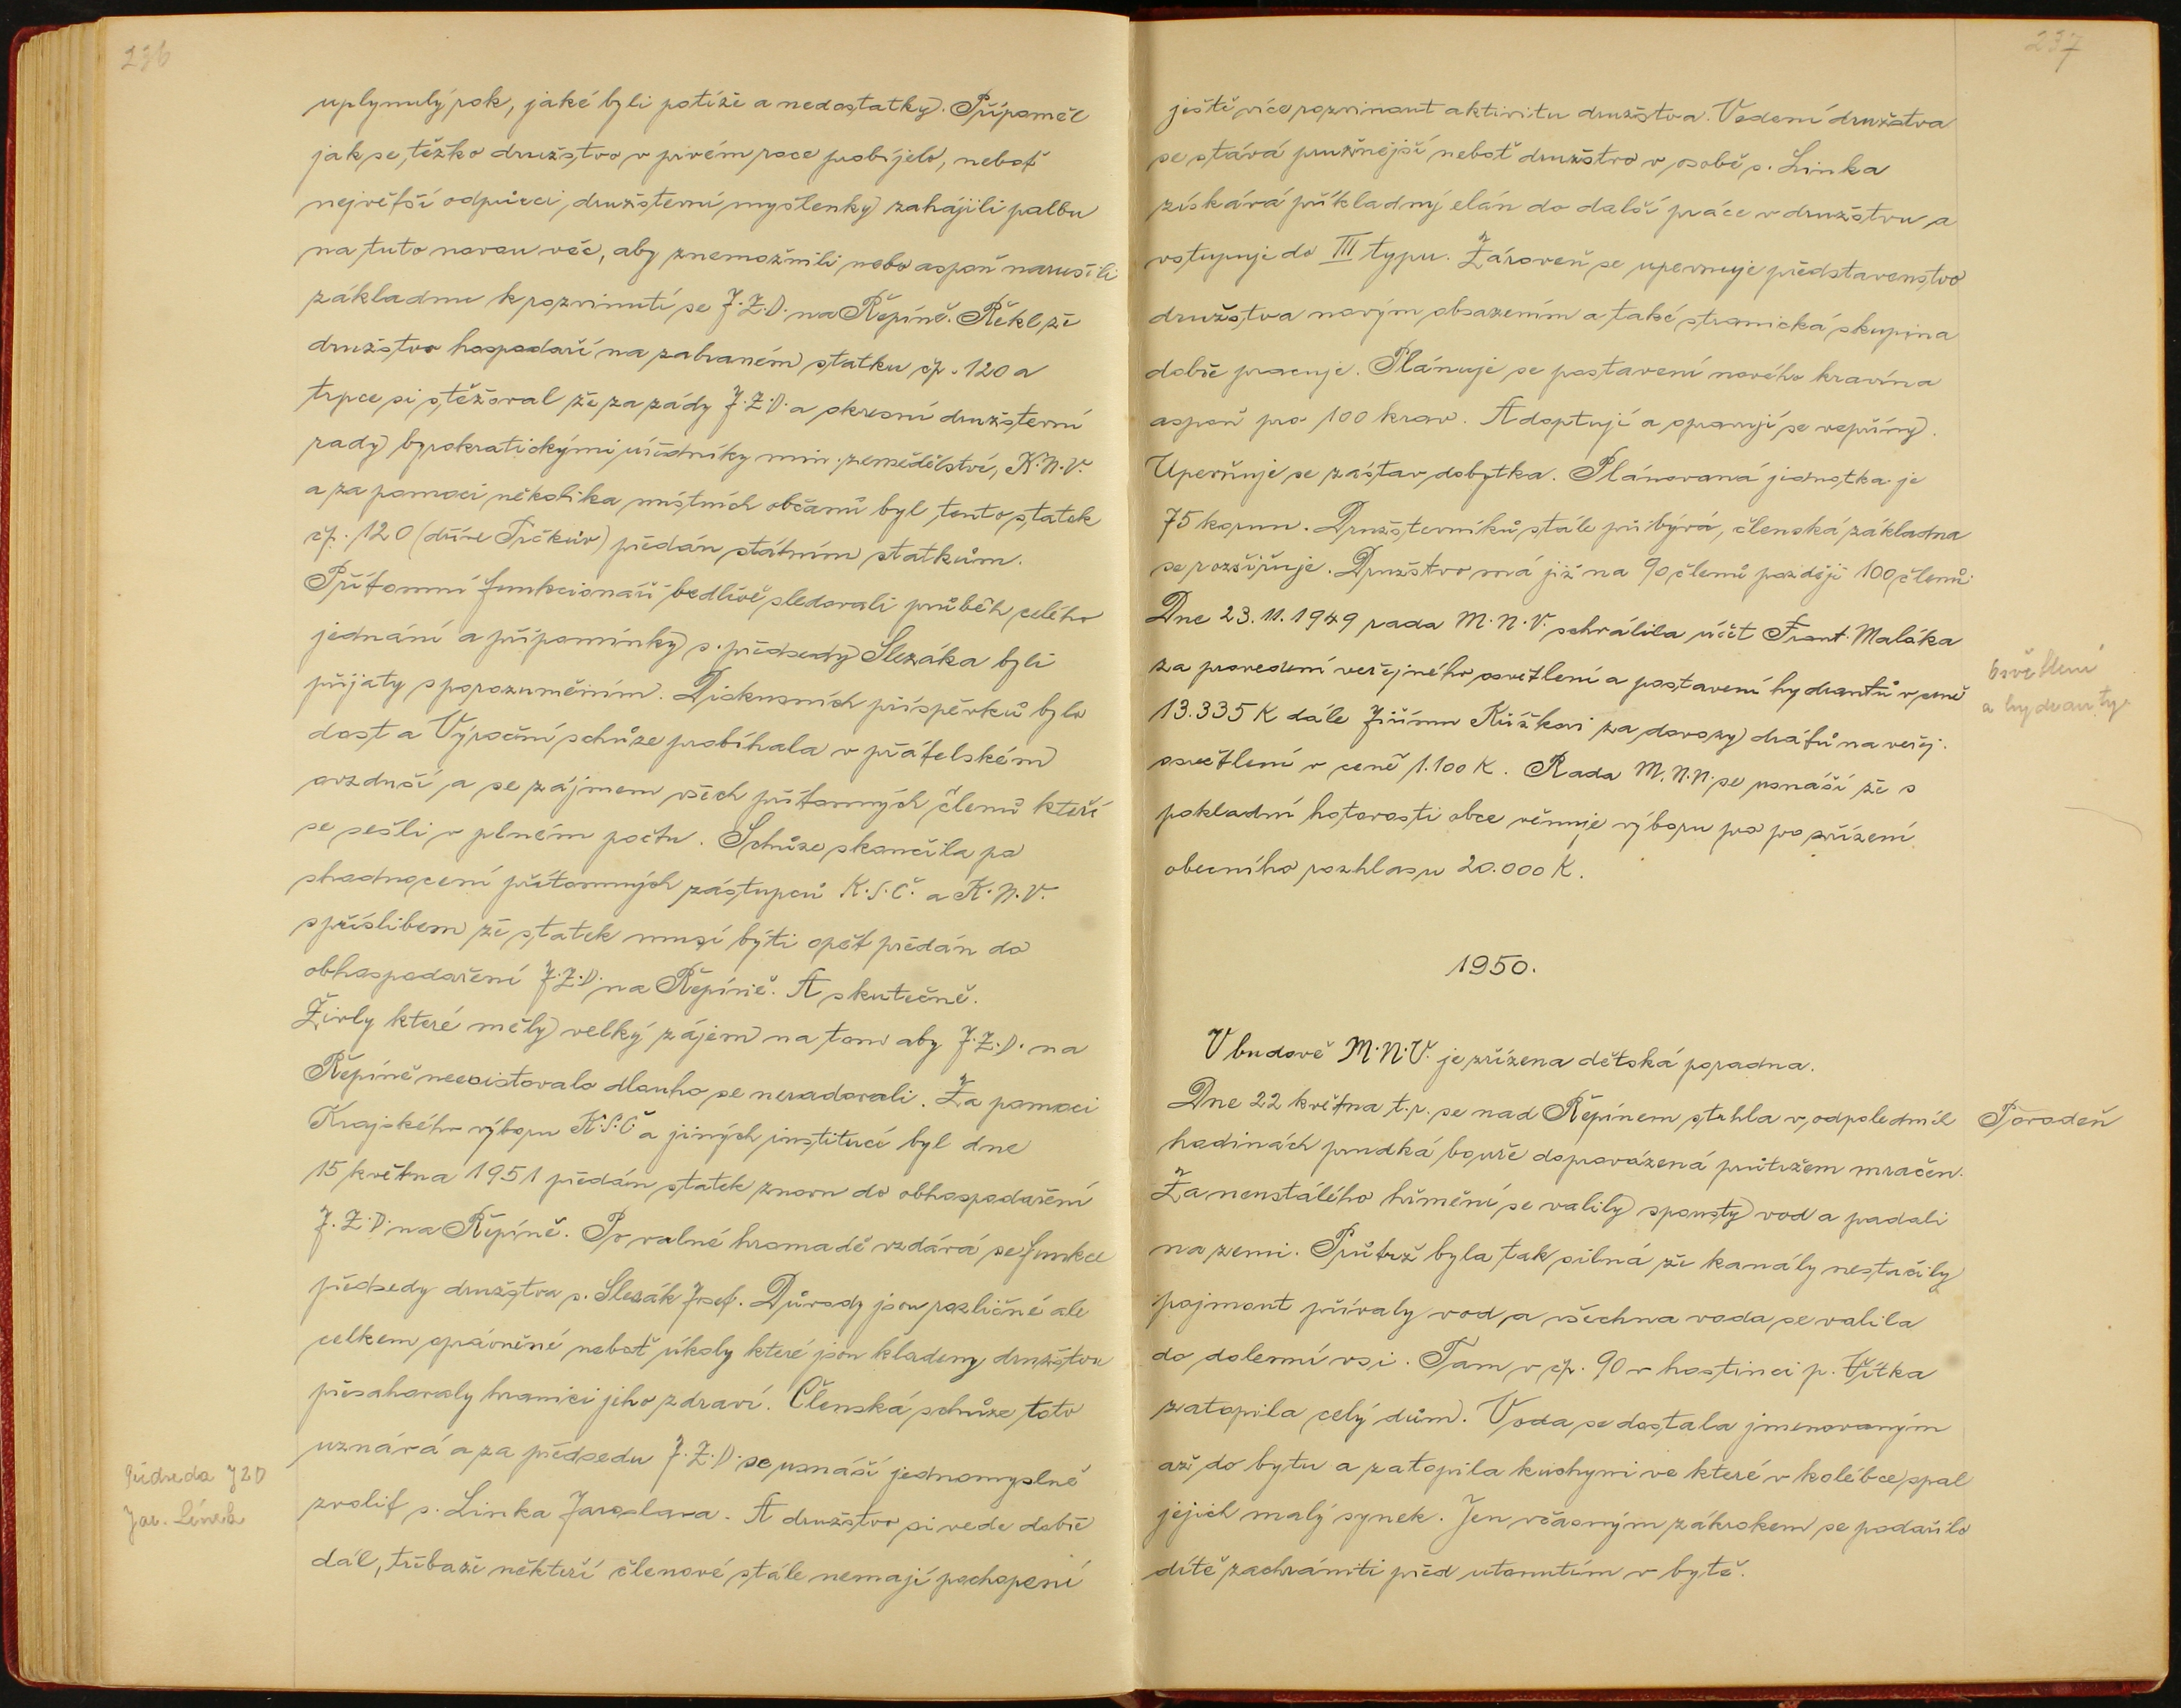 236
uplynulý rok, jaké byli potíže a nedostatky. Připoměl
jak se těžko družstvo v prvém roce probíjelo, neboť
největší odpůrci, družstevní myšlenky zahájili palbu
na tuto novou věc, aby znemožnili nebo aspoň narušili
základnu k rozvinutí se J.Z.D. na Řepíně. Řekl že
družstvo hospodaří na zabraném statku čp. 120 a
trpce si stěžoval že za zády J.Z.D. a okresní družstevní
rady byrokratickými úředníky min. zemědělství, K.N.V.
a za pomoci několika místních občanů byl tento statek
čp. 120 (dříve Trčkův) předán státním statkům.
Přítomní funkcionáři bedlivě sledovali průběh celého
jednání a připomínky s. předsedy Slezáka byli
přijaty s porozuměním. Diskusních příspěvků bylo
dost a Výroční schůze probíhala v přátelském
ovzduší a se zájmem všech přítomných členů kteří
se sešli v plném počtu. Schůze skončila po
shodnocení přítomných zástupců K.S.Č. a K.N.V.
s příslibem že statek musí býti opět předán do
obhospodaření J.Z.D. na Řepíně. A skutečně.
Živly které měly velký zájem na tom aby J.Z.D. na
Řepíně neexistovalo dlouho se neradovali. Za pomoci
Krajského výboru K.S.Č a jiných institucí byl dne
15 května 1951 předán statek znovu do obhospodaření
J.Z.D. na Řepíně. Po valné hromadě vzdává se funkce
předsedy družstva s. Slezák Josef. Důvody jsou rozličné ale
celkem oprávněné neboť úkoly které jsou kladeny družstvu
přesahovaly hranici jeho zdraví. Členská schůze toto
uznává a za předsedu J.Z.D. se usnáší jednomyslně
zvolit s. Linka Jaroslava. A družstvo si vede dobře
dál, třebaže někteří členové stále nemají pochopení
Předseda JZD
Jar. Línek
237
ještě více rozvinout aktivitu družstva. Vedení družstva
se stává pružnější neboť družstvo v osobě s. Linka
získává příkladný elán do další práce v družstvu a
vstupuje do III typu. Zároveň se upevnuje představenstvo
družstva novým obsazením a také stranická skupina
dobře pracuje. Plánuje se postavení nového kravína
aspoň pro 100 krav. Adoptují a opravují se vepříny.
Upevňuje se zástav dobytka. Plánovaná jednotka je
75 korun. Družsterníků stále přibývá, členská základna
se rozšiřuje. Družstvo má již na 90 členů později 100 členů
Dne 23.11.1949 rada M.N.V. schválila účet Frant. Maláka
za provedení veřejného osvětlení a postavení hydrantů v ceně
13.335 K dále Jiřímu Křížkovi za dovozy drátů na veřej.
osvětlení v ceně 1.100 K. Rada M.N.N. se usnáší že s
pokladní hotovosti obce věnuje výboru pro po zřízení
obecního rozhlasu 20.000 K.
Osvětlení
a hydranty.
1950.
V budově M.N.V. je zřízena dětská poradna.
Dne 22 května t.r. se nad Řepínem strhla v odpoledních
hodinách prudká bouře doprovázená průtržem mračen.
Za neustálého hřmění se valily spousty vod a padali
na zemi. Průtrž byla tak silná že kanály nestačily
pojmout přívaly vod a všechna voda se valila
do dolenní vsi. Tam v čp. 90 v hostinci p. Vítka
zatopila celý dům. Voda se dostala jmenovaným
až do bytu a zatopila kuchyni ve které v kolébce spal
jejich malý synek. Jen včasným zákrokem se podařilo
dítě zachrániti před utonutím v bytě.
Povodeň